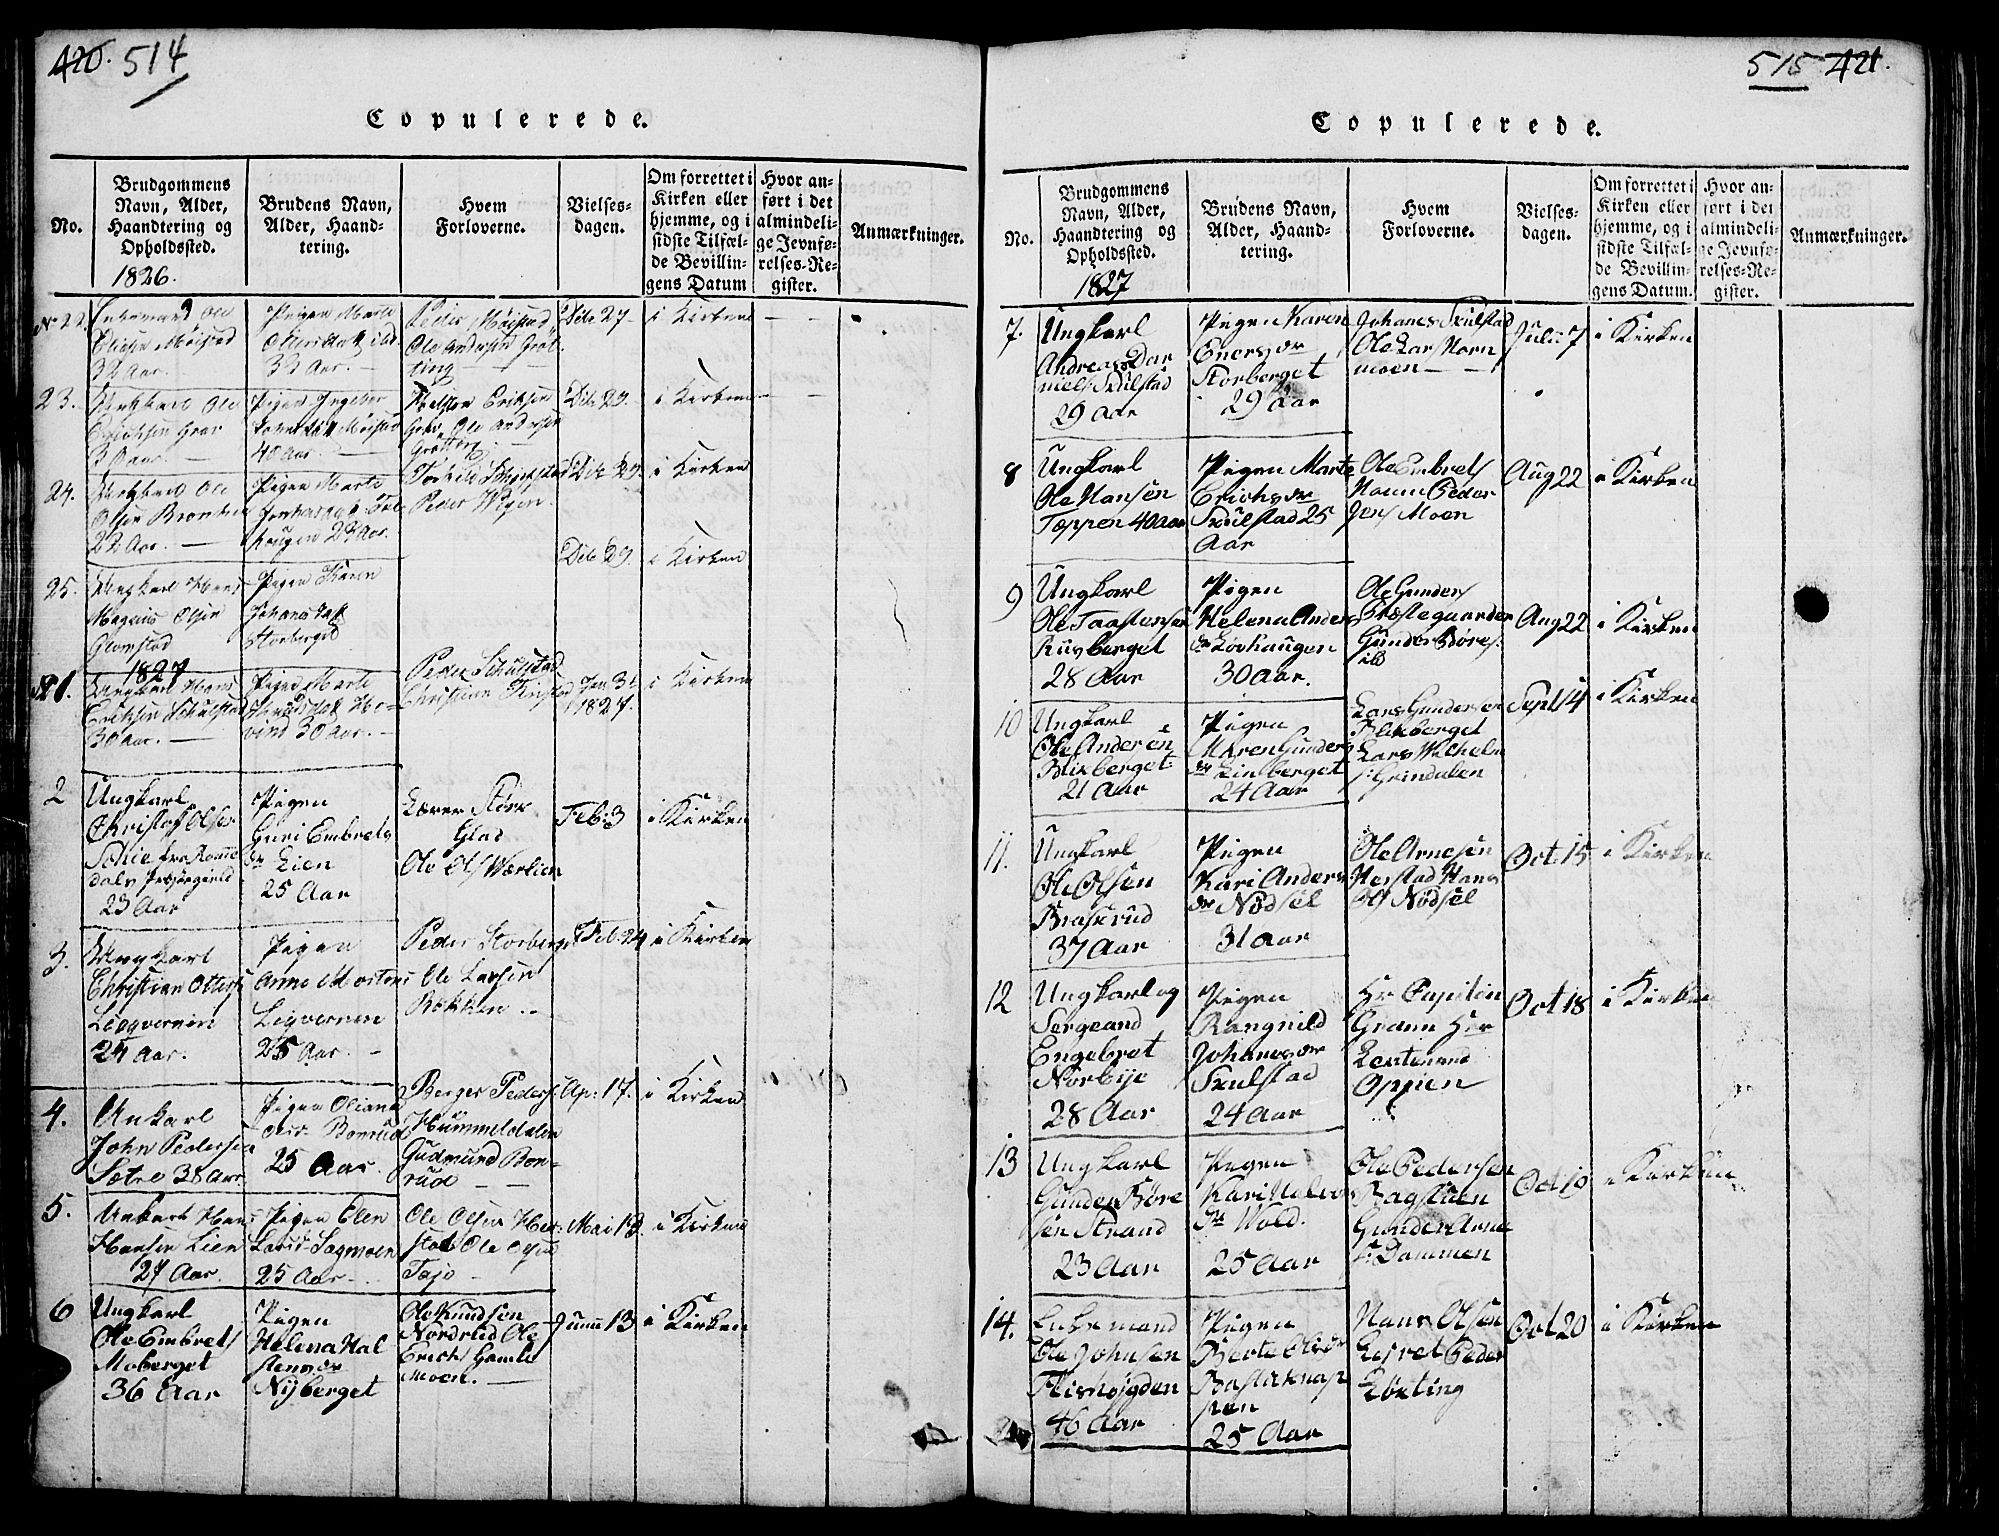 420. 514
Copulerede.
No.
Brudgommens
Navn, Alder,
Haandtering og
Opholdssted.
1826.
Brudens Navn,
Alder, Haand-
tering.
Hvem
Forloverne.
Vielses-
dagen.
Om forrettet i
Kirken eller
hjemme, og i
sidste Tilfæl-
de Bevillin-
gens Datum
Hvor an-
ført i det
almindeli-
ge Jevnfø-
relses-Re-
gister.
Anmærkninger.
N 22.
Enkemand Ole
Møistad
32 Aar.
Pigen Marte
33 Aar.
Peder Møistad
Ole Andersen Grøt-
ting
Dcb: 27
i Kirken
23.
Ungkarl Ole
Erichsen Grav
Aar.
Pigen Ingebor
Møistad
40 Aar.
Eriksen
Grav Ole Andersen
Grøtting
Dcb: 29.
i Kirken
24.
Ungkarl Ole
Olsen
22 Aar.
Pigen Marte
haugen 23 Aar.
Peder
Dcb 29.
i Kirken
25.
Ungkarl Hans
Magnus Olsen
Glomstad
Pigen Karen
Johans
Storberget
Dcb 29.
i Kirken
1827
N 1.
Ungkarl Hans
Eriksen Schulstad
30 Aar.
Pigen Marte
Ho-
vind 30 Aar.
Peder Schulstad
Christian
Jan 31
1827.
i Kirken
2
Ungkarl
Christof Olsen
fra Romme
dals Præstegield
23 Aar
Pigen
Guri Embrets
dr Lien
25 Aar
Lærer Størr
Glad
Ole Ols Wærlien
Feb: 3
i Kirken
3.
Ungkarl
Christian Ottersen
Ligvernen
24 Aar.
Pigen
Anne Mortens
Ligvernen
25 Aar.
Peder Storberget
Ole Larsen
Bekken
Feb. 24
i Kirken
4.
Unkarl
John Pedersen
Sætre 38 Aar.
Pigen Oliana
Bonrud
25 Aar.
Berger Peders:
Hummeldalen
Gudmund Bon-
rud
Ap: 17.
i Kirken
5.
Unkarl Hans
Hansen Lien
27 Aar.
Pigen Elen
Larsd. Sagmoen
25 Aar.
Ole Olsen Her-
stad Ole Olsen
Tajo
Mai 13
i Kirken
6
Ungkarl
Ole Embrets
Moberget
36 Aar
Pigen
Helena Hal
stensdr
Nyberget
Ole Knudsen
Nordrud Ole
Erichs Gamle
moen.
Junii 13
i Kirken
515 421.
Copulerede.
No.
Brudgommens
Navn, Alder,
Haandtering og
Opholdssted.
1827
Brudens Navn,
Alder, Haand-
tering.
Hvem
Forloverne.
Vielses-
dagen.
Om forrettet i
Kirken eller
hjemme, og i
sidste Tilfæl-
de Bevillin-
gens Datum.
Hvor an-
ført i det
almindeli-
ge Jevnfø-
relses-Re-
gister.
Anmærkninger.
7.
Ungkarl
Andreas Dan
niels Skulstad
29 Aar
Pigen Karen
Enersdr
Storberget
29 Aar
Johanes Skulstad
Ole Lars Horn
moen
Julii 7
i Kirken
8
Ungkarl
Ole Hansen
Tøppen 40 Aar
Pigen Marte
Erichsdr
Skulstad 25
Aar
Ole Embrets
Houm Peder
Jens Moen
Aug 22
i Kirken
9
Ungkarl
Ole Taastensen
Rusberget
28 Aar
Pigen
Helena Anders
dr Løvhaugen
30 Aar.
Ole Gunders
Præstegaarden
Gunder Børes:
Aug 22
i Kirken
10
Ungkarl
Ole Andersen
Blixberget
21 Aar
Pigen
Maren Gunders
dr Linberget
24 Aar
Lars Gundersen
Blixberget
Lars Wilhelm
s: Grindalen
Sept 14
i Kirken
11.
Ungkarl
Ole Olsen
Braskrud
37 Aar
Pigen
Kari Anders
dr Nødsel
31 Aar
Ole Arnesen
Herstad Hans
Ols Nødsel
Oct. 15
i Kirken
12
Ungkarl og
Sergeand
Engebret
Norbye
28 Aar
Pigen
Rangnild
Johanesdr
Skulstad
24 Aar
Hr Capitön
Gramm Her
Leutenand
Oppen
Oct 18
i Kirken
13
Ungkarl
Gunder Børe
sen Strand
23 Aar
Pigen
Kari Halvors
dr Wold.
25 Aar
Ole Pedersen
Bagstuen
Gunder Arne
s: Dammen
Oct 19
i Kirken
14.
Enkemand
Ole Johnsen
Flishøgden
46 Aar
Pigen
Berte Olsdr
Bastaknap
pen
25 Aar
Hans Olsen
Lejret Peder
Løxting
Oct 20
i Kirken